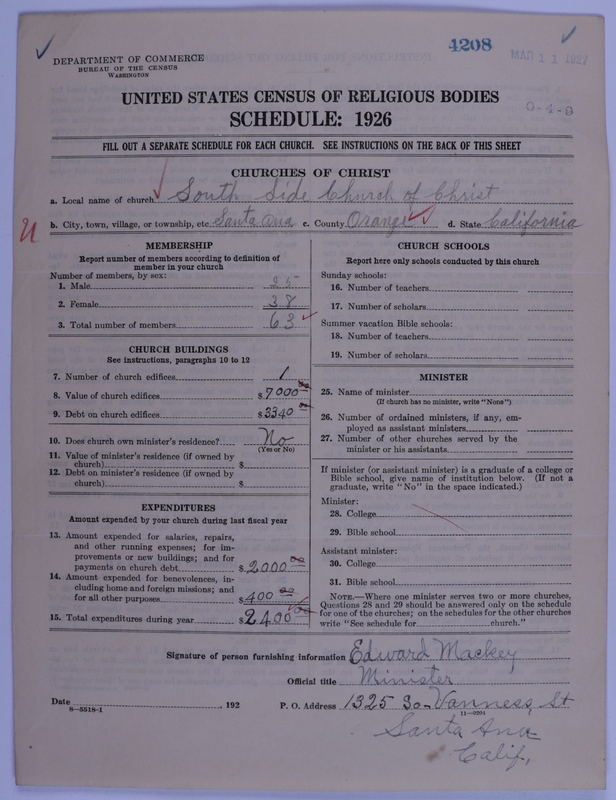 4208
MAR 11 1927
DEPARTMENT OF COMMERCE
BUREAU OF THE CENSUS
WASHINGTON
0-4-9
UNITED STATES CENSUS OF RELIGIOUS BODIES
SCHEDULE: 1926
FILL OUT A SEPARATE SCHEDULE FOR EACH CHURCH. SEE INSTRUCTIONS ON THE BACK OF THIS SHEET
CHURCHES OF CHRIST
a. Local name of church South Side Church of Christ
b. City, town, village, or township, etc. Santa Ana c. County Orange d. State California
MEMBERSHIP
Report number of members according to definition of
member in your church
Number of members, by sex:
1. Male 25
2. Female 38
3. Total number of members 63
CHURCH BUILDINGS
See instructions, paragraphs 10 to 12
7. Number of church edifices 1
8. Value of church edifices $7000 00
9. Debt on church edifices $3340 00
10. Does church own minister's residence? No
(Yes or No)
11. Value of minister's residence (if owned by
church) $
12. Debt on minister's residence (if owned by
church) $
EXPENDITURES
Amount expended by your church during last fiscal year
13. Amount expended for salaries, repairs,
and other running expenses; for im-
provements or new buildings; and for
payments on church debt $2000 00
14. Amount expended for benevolences, in-
cluding home and foreign missions; and
for all other purposes $400 00
15. Total expenditures during year $2400 00
CHURCH SCHOOLS
Report here only schools conducted by this church
Sunday schools:
16. Number of teachers
17. Number of scholars
Summer vacation Bible schools:
18. Number of teachers
19. Number of scholars
MINISTER
25. Name of minister
(If church has no minister, write "None")
26. Number of ordained ministers, if any, em-
ployed as assistant ministers
27. Number of other churches served by the
minister or his assistants
If minister (or assistant minister) is a graduate of a college or
Bible school, give name of institution below. (If not a
graduate, write "No" in the space indicated.)
Minister:
28. College
29. Bible school
Assistant minister:
30. College
31. Bible school
NOTE.—Where one minister serves two or more churches,
Questions 28 and 29 should be answered only on the schedule
for one of the churches; on the schedules for the other churches
write "See schedule for church."
Signature of person furnishing information Edward Mackey
Official title Minister
Date , 192 P. O. Address 1325 So. Vanness, St
8-5518-1 11-9204
Santa Ana
Calif,